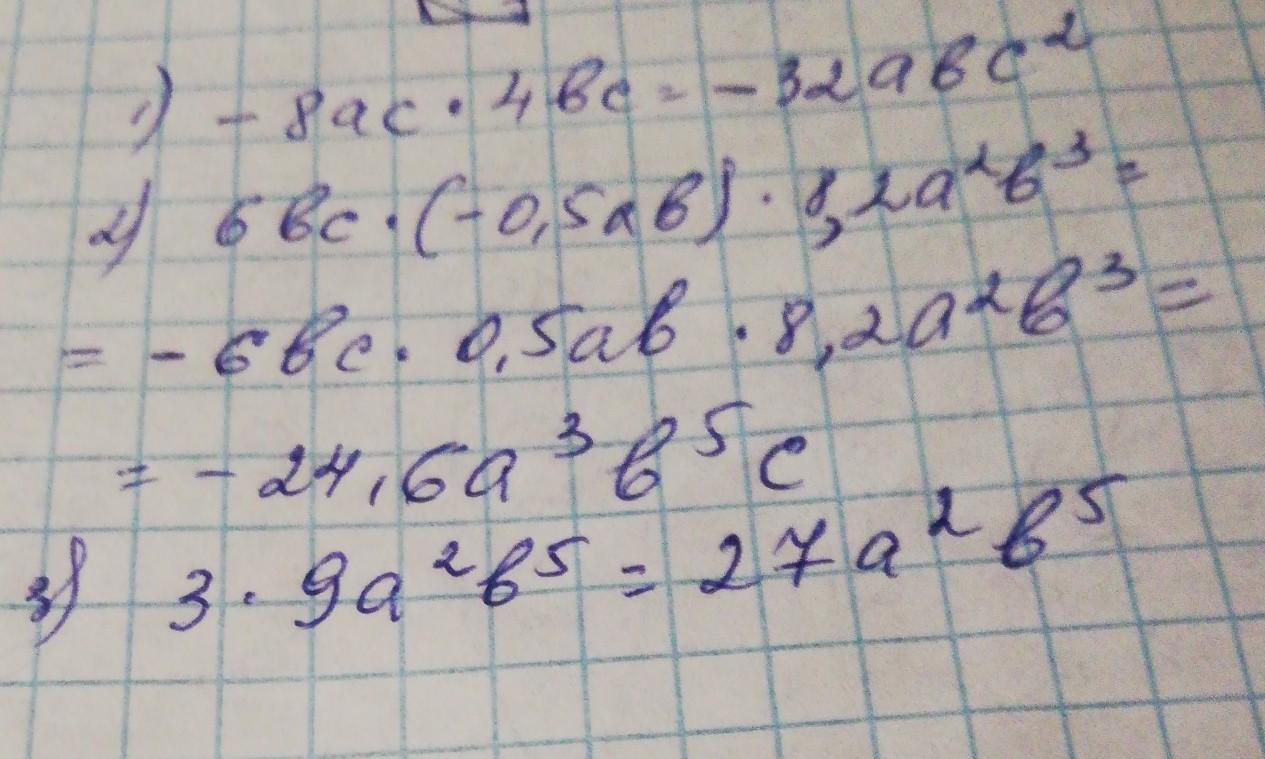 1) -8ac · 4bc = -32abc²
2) 6bc · (-0,5ab) · 8,2a²b³ =
= -6bc · 0,5ab · 8,2a²b³ =
= -24,6a³b⁵c
3) 3 · 9a²b⁵ = 27a²b⁵